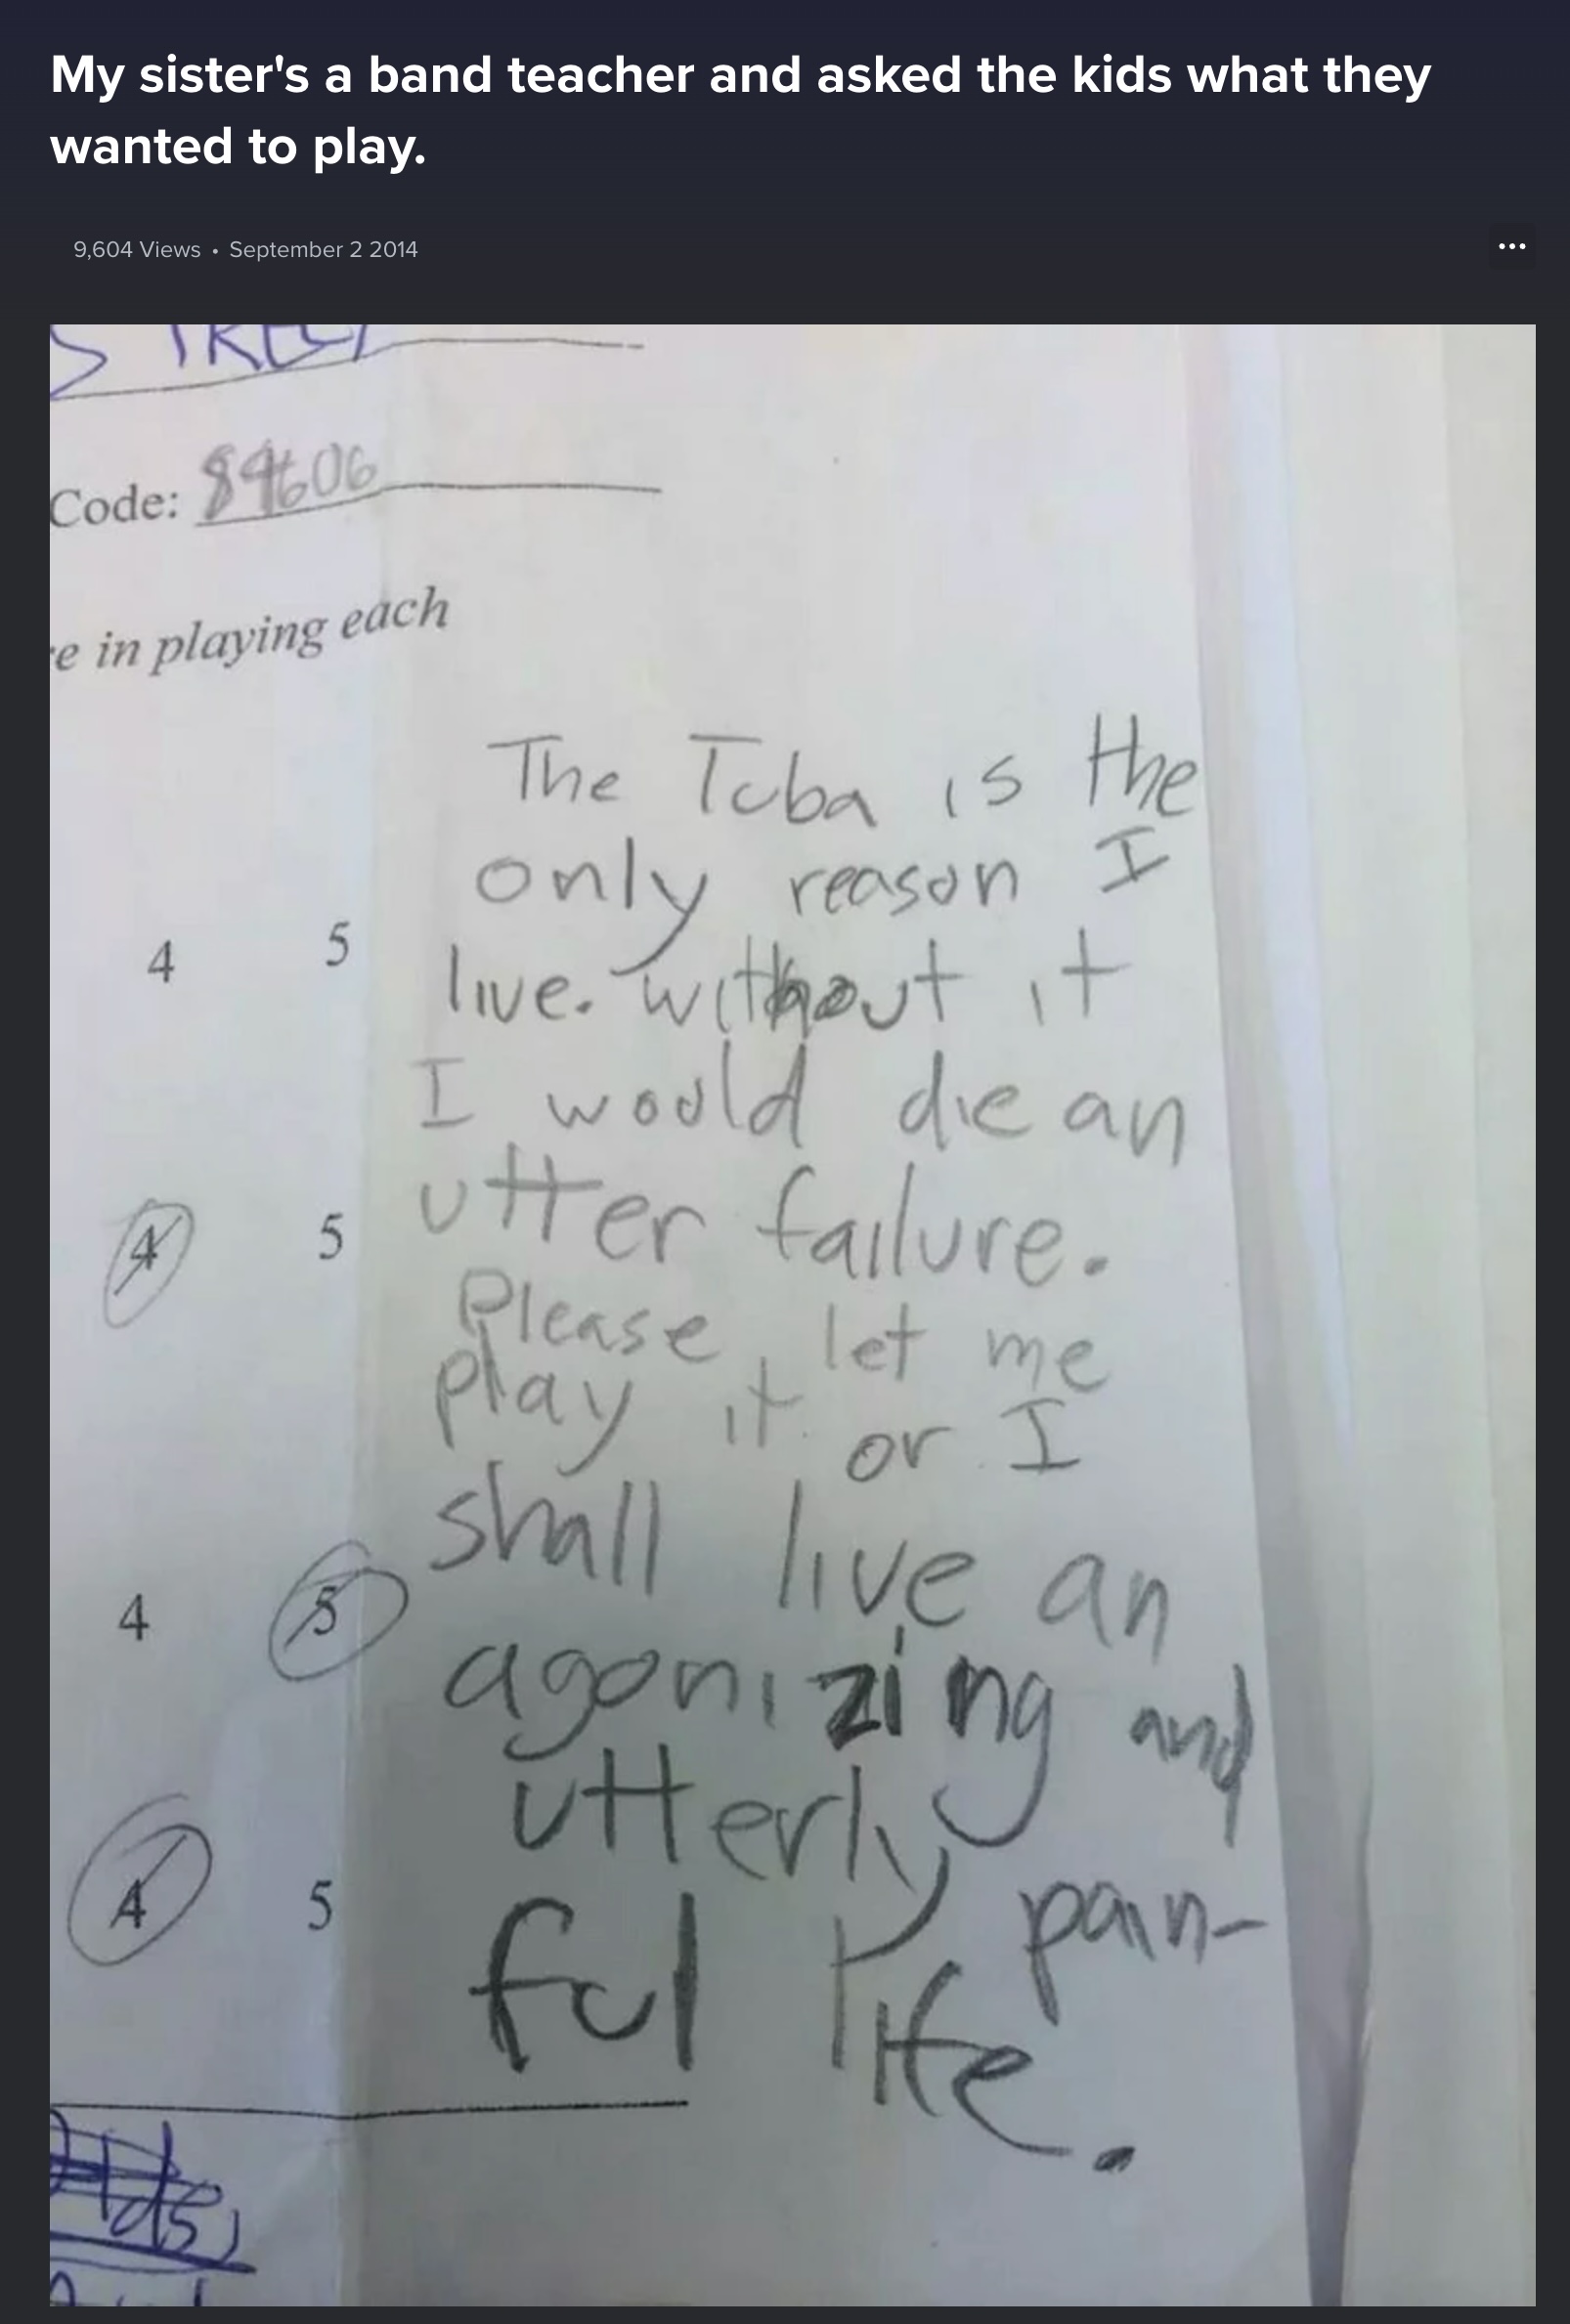 My sister's a band teacher and asked the kids what they
wanted to play.
9,604 Views • September 2 2014
Code: 84606
e in playing each
The Tuba is the
only reason I
4 5
live. without it
I would die an
4 5
utter failure.
Please let me
play it or I
shall live an
4 5
agonizing and
utterly pain-
4 5
ful life.